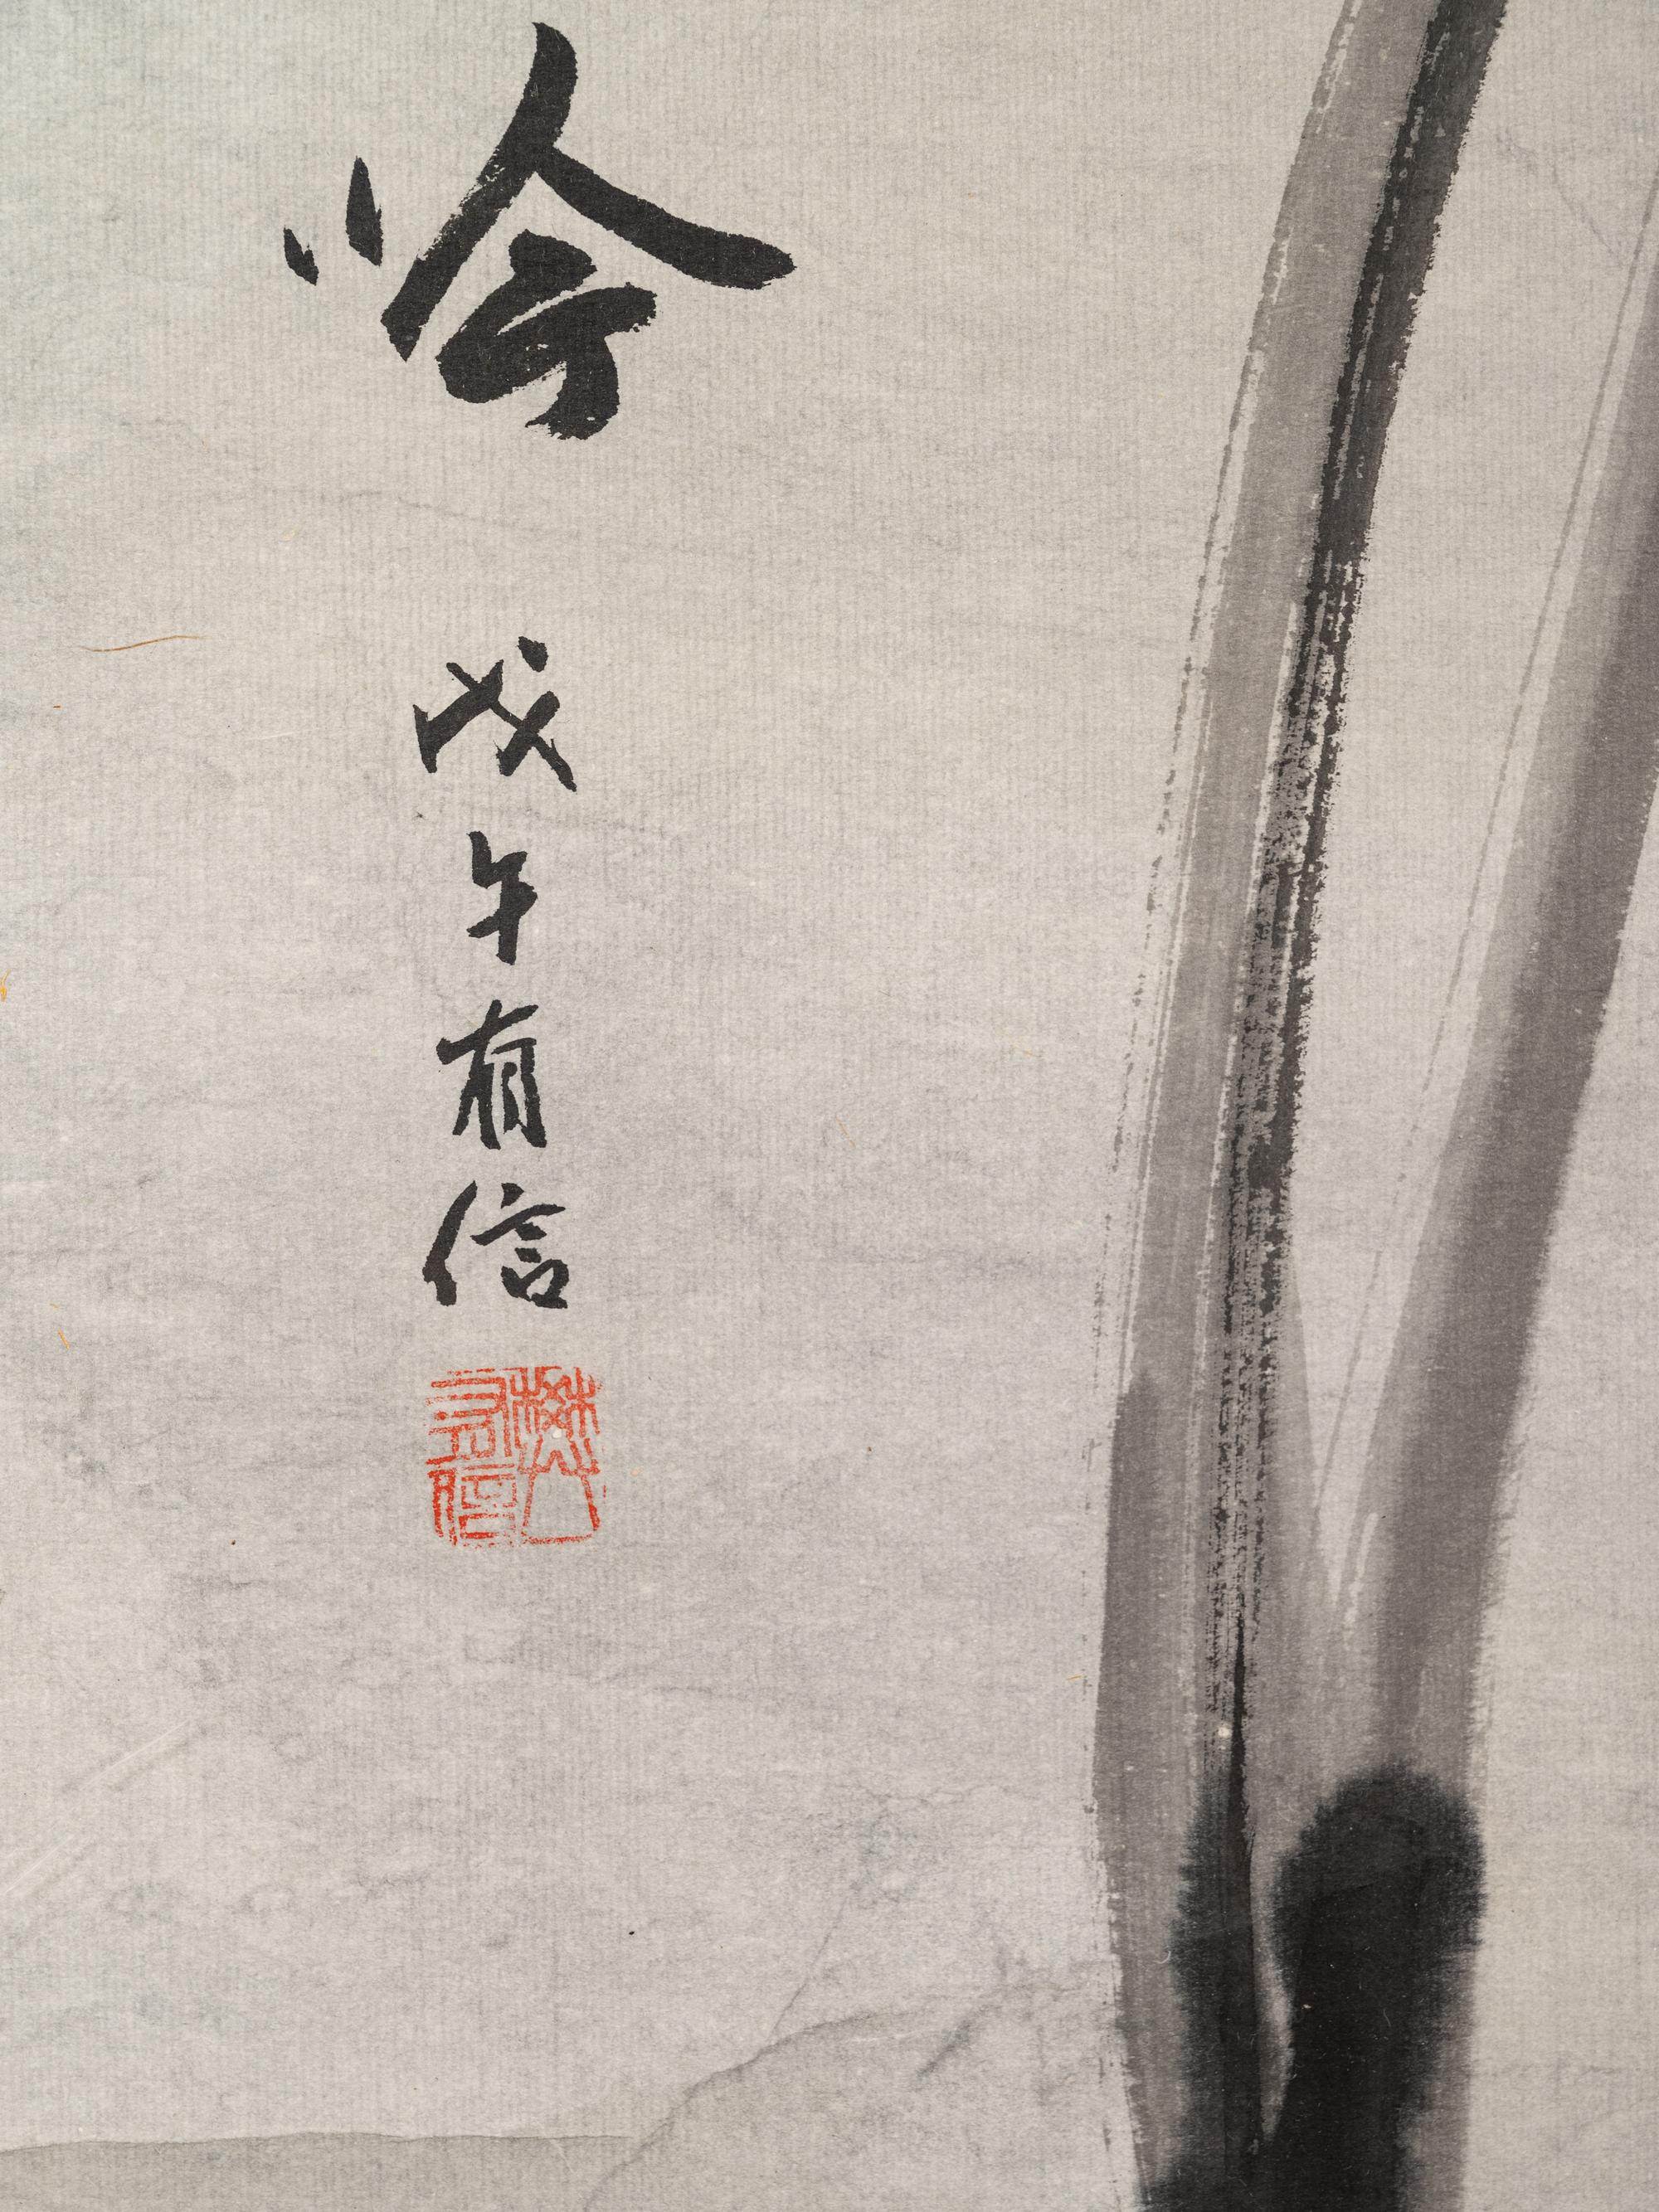 吟 戊午有信